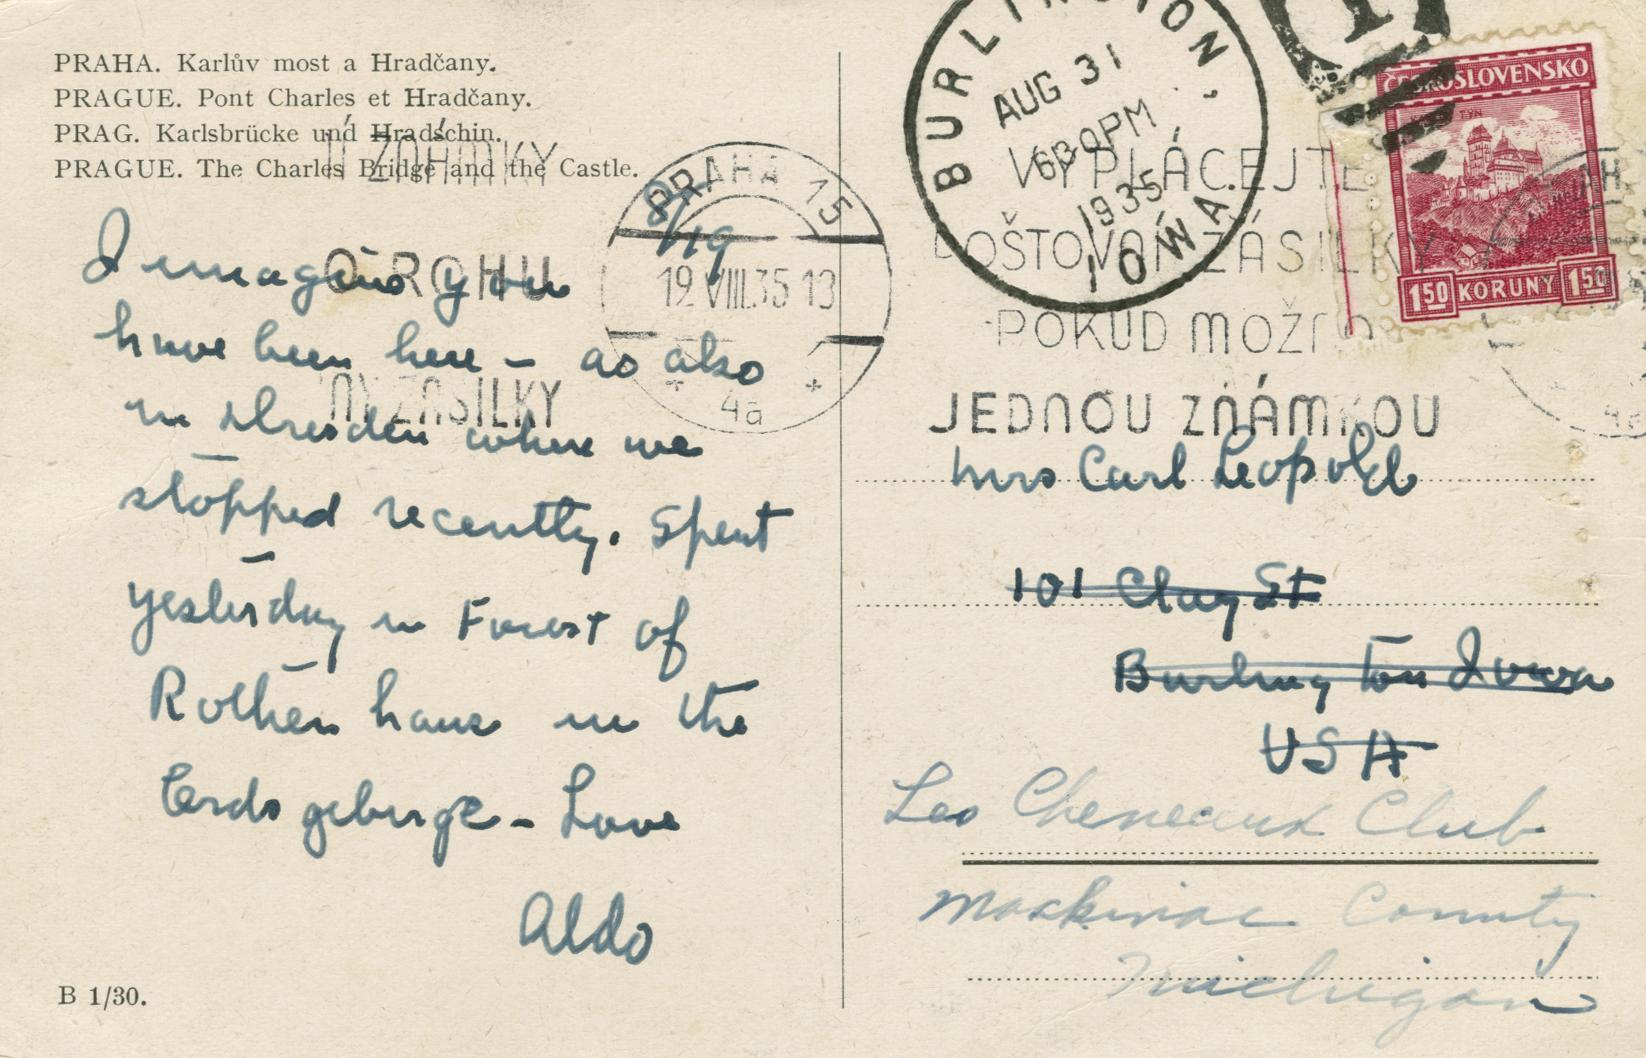 PRAHA. Karlův most a Hradčany.
PRAGUE. Pont Charles et Hradčany.
PRAG. Karlsbrücke und Hradschin.
PRAGUE. The Charles Bridge and the Castle.
8/19
I imagine you
have been here – as also
in Dresden where we
stopped recently. Spent
yesterday in Forest of
Rothenhaus in the
Erdsgebirge – Love
Aldo
B 1/30.
ZÁSILKY
PRAHA 15
19 VIII.35 13
4a
BURLINGTON,
AUG 31
630PM
1935
IOWA
VYPLÁCEJTE
POŠTOVNÍ ZÁSILKY
POKUD MOŽNO
JEDNOU ZNÁMKOU
ČESKOSLOVENSKO
TÝN
1·50 KORUNY 1·50
Mrs Carl Leopold
101 Clay St
Burlington Iowa
USA
Les Cheneaux Club
Mackinac County
Michigan